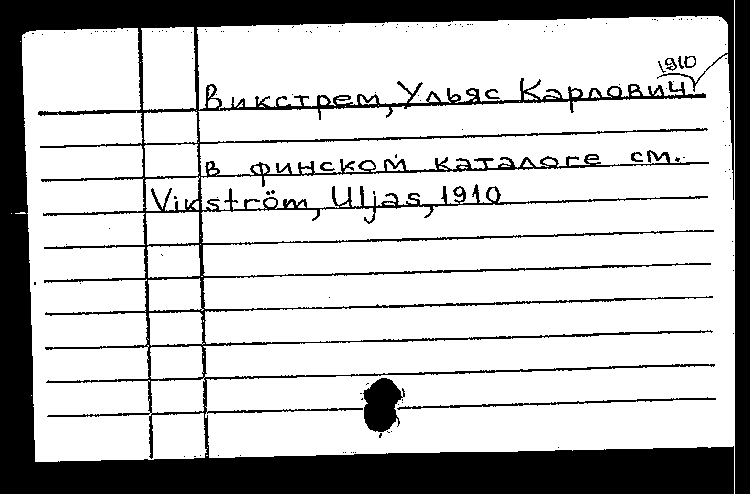 1910
Викстрем, Ульяс Карлович
в финском каталоге см.
Vikström, Uljas, 1910